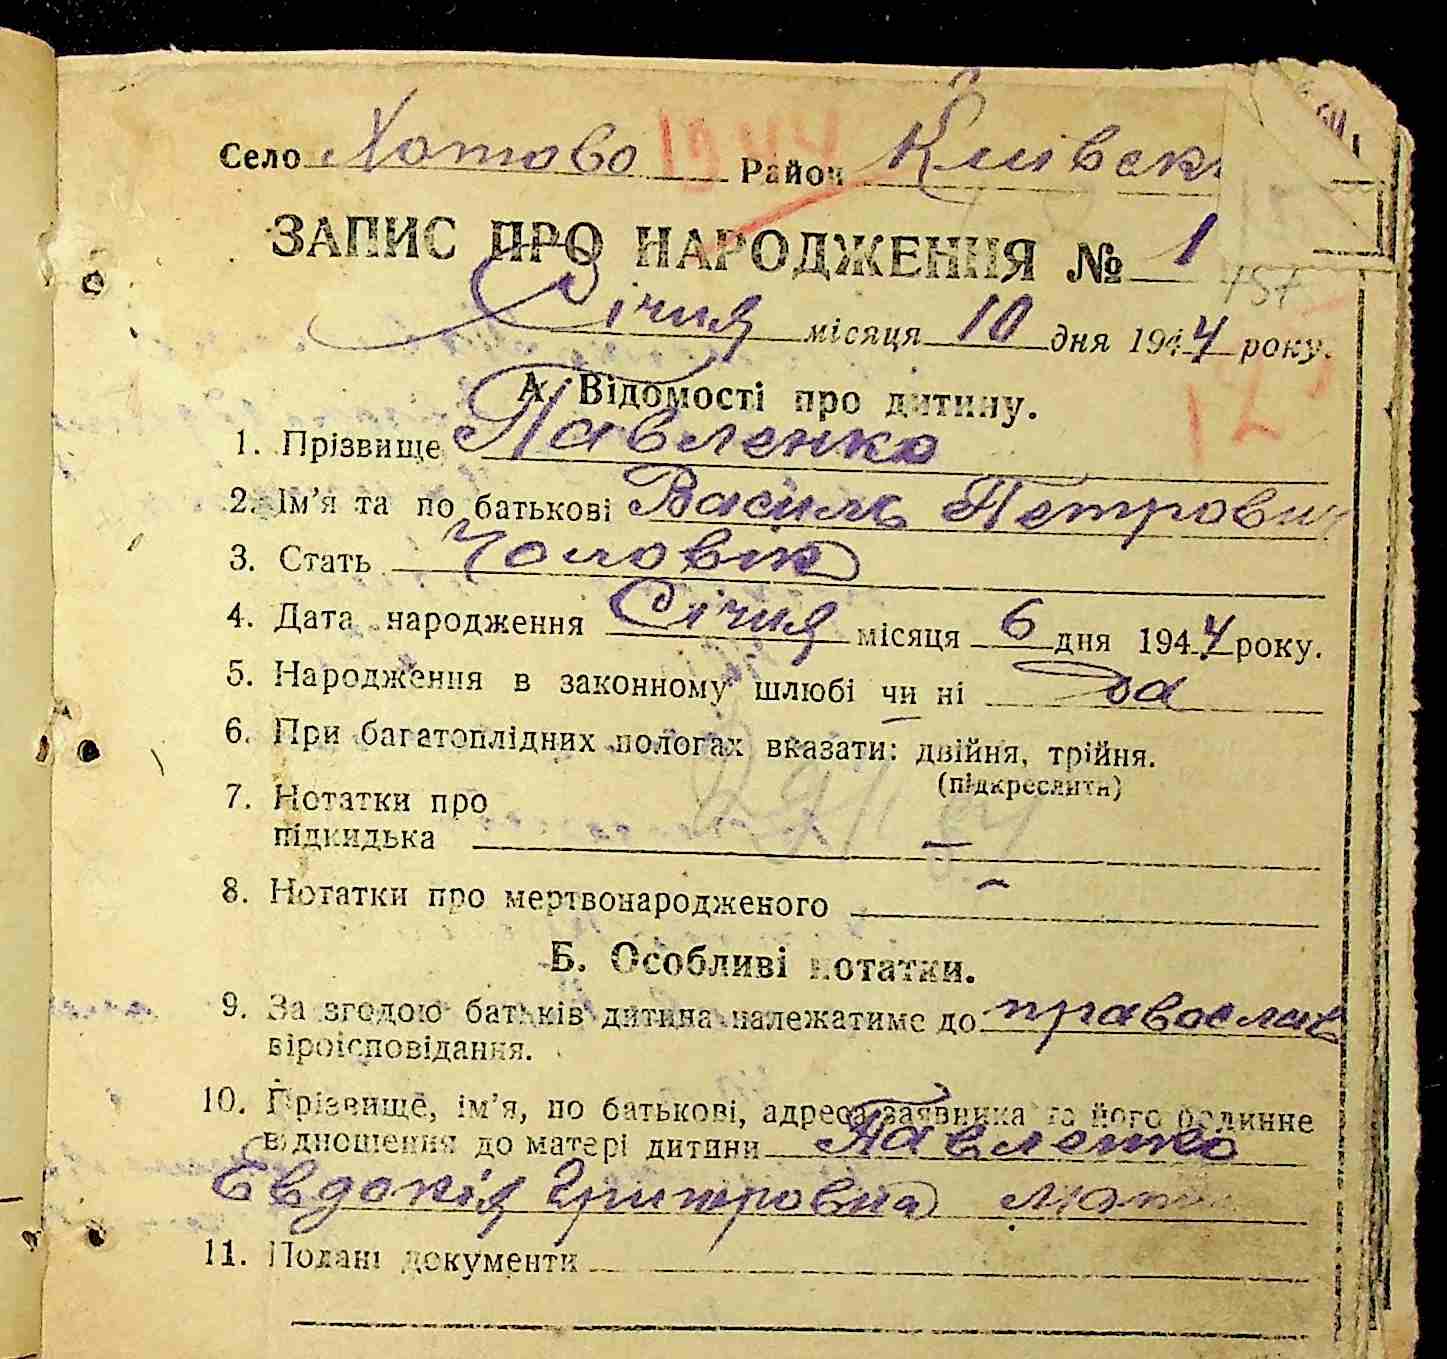 Село Хотово 1944 Район Київськ
ЗАПИС ПРО НАРОДЖЕННЯ № 1
757
Січня місяця 10 дня 1944 року.
А. Відомості про дитину.
1. Прізвище Павленко
2. Ім'я та по батькові Василь Петрович
3. Стать Чоловік
4. Дата народження Січня місяця 6 дня 1944 року.
5. Народження в законному шлюбі чи ні Да
6. При багатоплідних пологах вказати: двійня, трійня.
(підкреслити)
7. Нотатки про
підкидька —
8. Нотатки про мертвонародженого
Б. Особливі нотатки.
9. За згодою батьків дитина належатиме до православ
віроісповідання.
10. Прізвище, ім'я, по батькові, адреса заявника та його родинне
відношення до матері дитини Павленко
Евдокія Григоровна мати
11. Подані документи